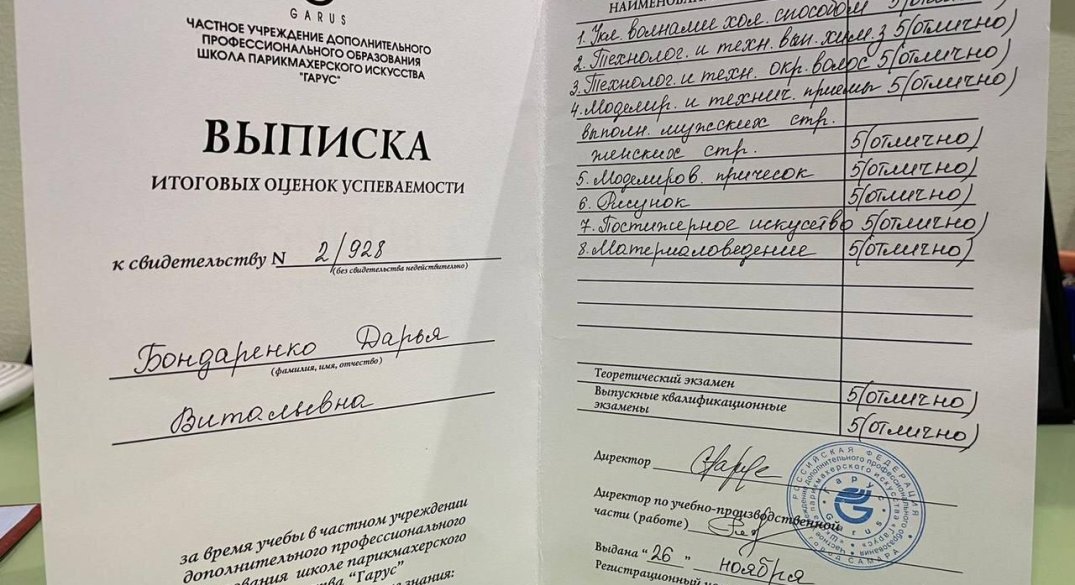 GARUS
ЧАСТНОЕ УЧРЕЖДЕНИЕ ДОПОЛНИТЕЛЬНОГО
ПРОФЕССИОНАЛЬНОГО ОБРАЗОВАНИЯ
ШКОЛА ПАРИКМАХЕРСКОГО ИСКУССТВА
"ГАРУС"
ВЫПИСКА
ИТОГОВЫХ ОЦЕНОК УСПЕВАЕМОСТИ
к свидетельству N 2/928
(без свидетельства недействительно)
Бондаренко Дарья
(фамилия, имя, отчество)
Витальевна
за время учебы в частном учреждении
дополнительного профессионального
школе парикмахерского
"Гарус"
знания:
1. Укл. волнами хол. способом 5(отлично)
2. Технолог. и техн. вып. хим. з 5(отлично)
3. Технолог. и техн. окр. волос 5(отлично)
4. Моделир. и технич. приемы 5(отлично)
выполн. мужских стр.
женских стр. 5(отлично)
5. Моделиров. причесок 5(отлично)
6. Рисунок 5(отлично)
7. Постижерное искусство 5(отлично)
8. Материаловедение 5(отлично)
Теоретический экзамен 5(отлично)
Выпускные квалификационные
экзамены 5(отлично)
Директор
Директор по учебно-производственной
части (работе)
Выдана "26" ноября
Регистрационный
РОССИЙСКАЯ ФЕДЕРАЦИЯ
ГОРОД САМАРА
Гарус
Garus